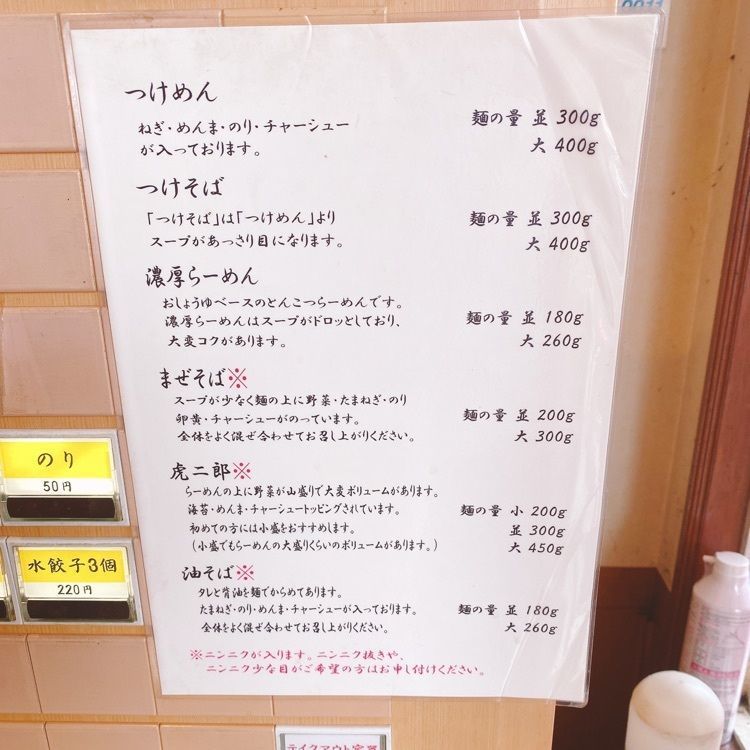 つけめん
ねぎ・めんま・のり・チャーシュー
が入っております。
麺の量 並 300g
大 400g
つけそば
「つけそば」は「つけめん」より
スープがあっさり目になります。
麺の量 並 300g
大 400g
濃厚らーめん
おしょうゆベースのとんこつらーめんです。
濃厚らーめんはスープがドロッとしており、
大変コクがあります。
麺の量 並 180g
大 260g
まぜそば※
スープが少なく麺の上に野菜・たまねぎ・のり
卵黄・チャーシューがのっています。
全体をよく混ぜ合わせてお召し上がりください。
麺の量 並 200g
大 300g
虎二郎※
らーめんの上に野菜が山盛りで大変ボリュームがあります。
海苔・めんま・チャーシュートッピングされています。
初めての方には小盛をおすすめします。
(小盛でもらーめんの大盛りくらいのボリュームがあります。)
麺の量 小 200g
並 300g
大 450g
油そば※
タレと背油を麺でからめてあります。
たまねぎ・のり・めんま・チャーシューが入っております。
全体をよく混ぜ合わせてお召し上がりください。
麺の量 並 180g
大 260g
※ニンニクが入ります。ニンニク抜きや、
ニンニク少な目がご希望の方はお申し付けください。
のり
50円
水餃子3個
220円